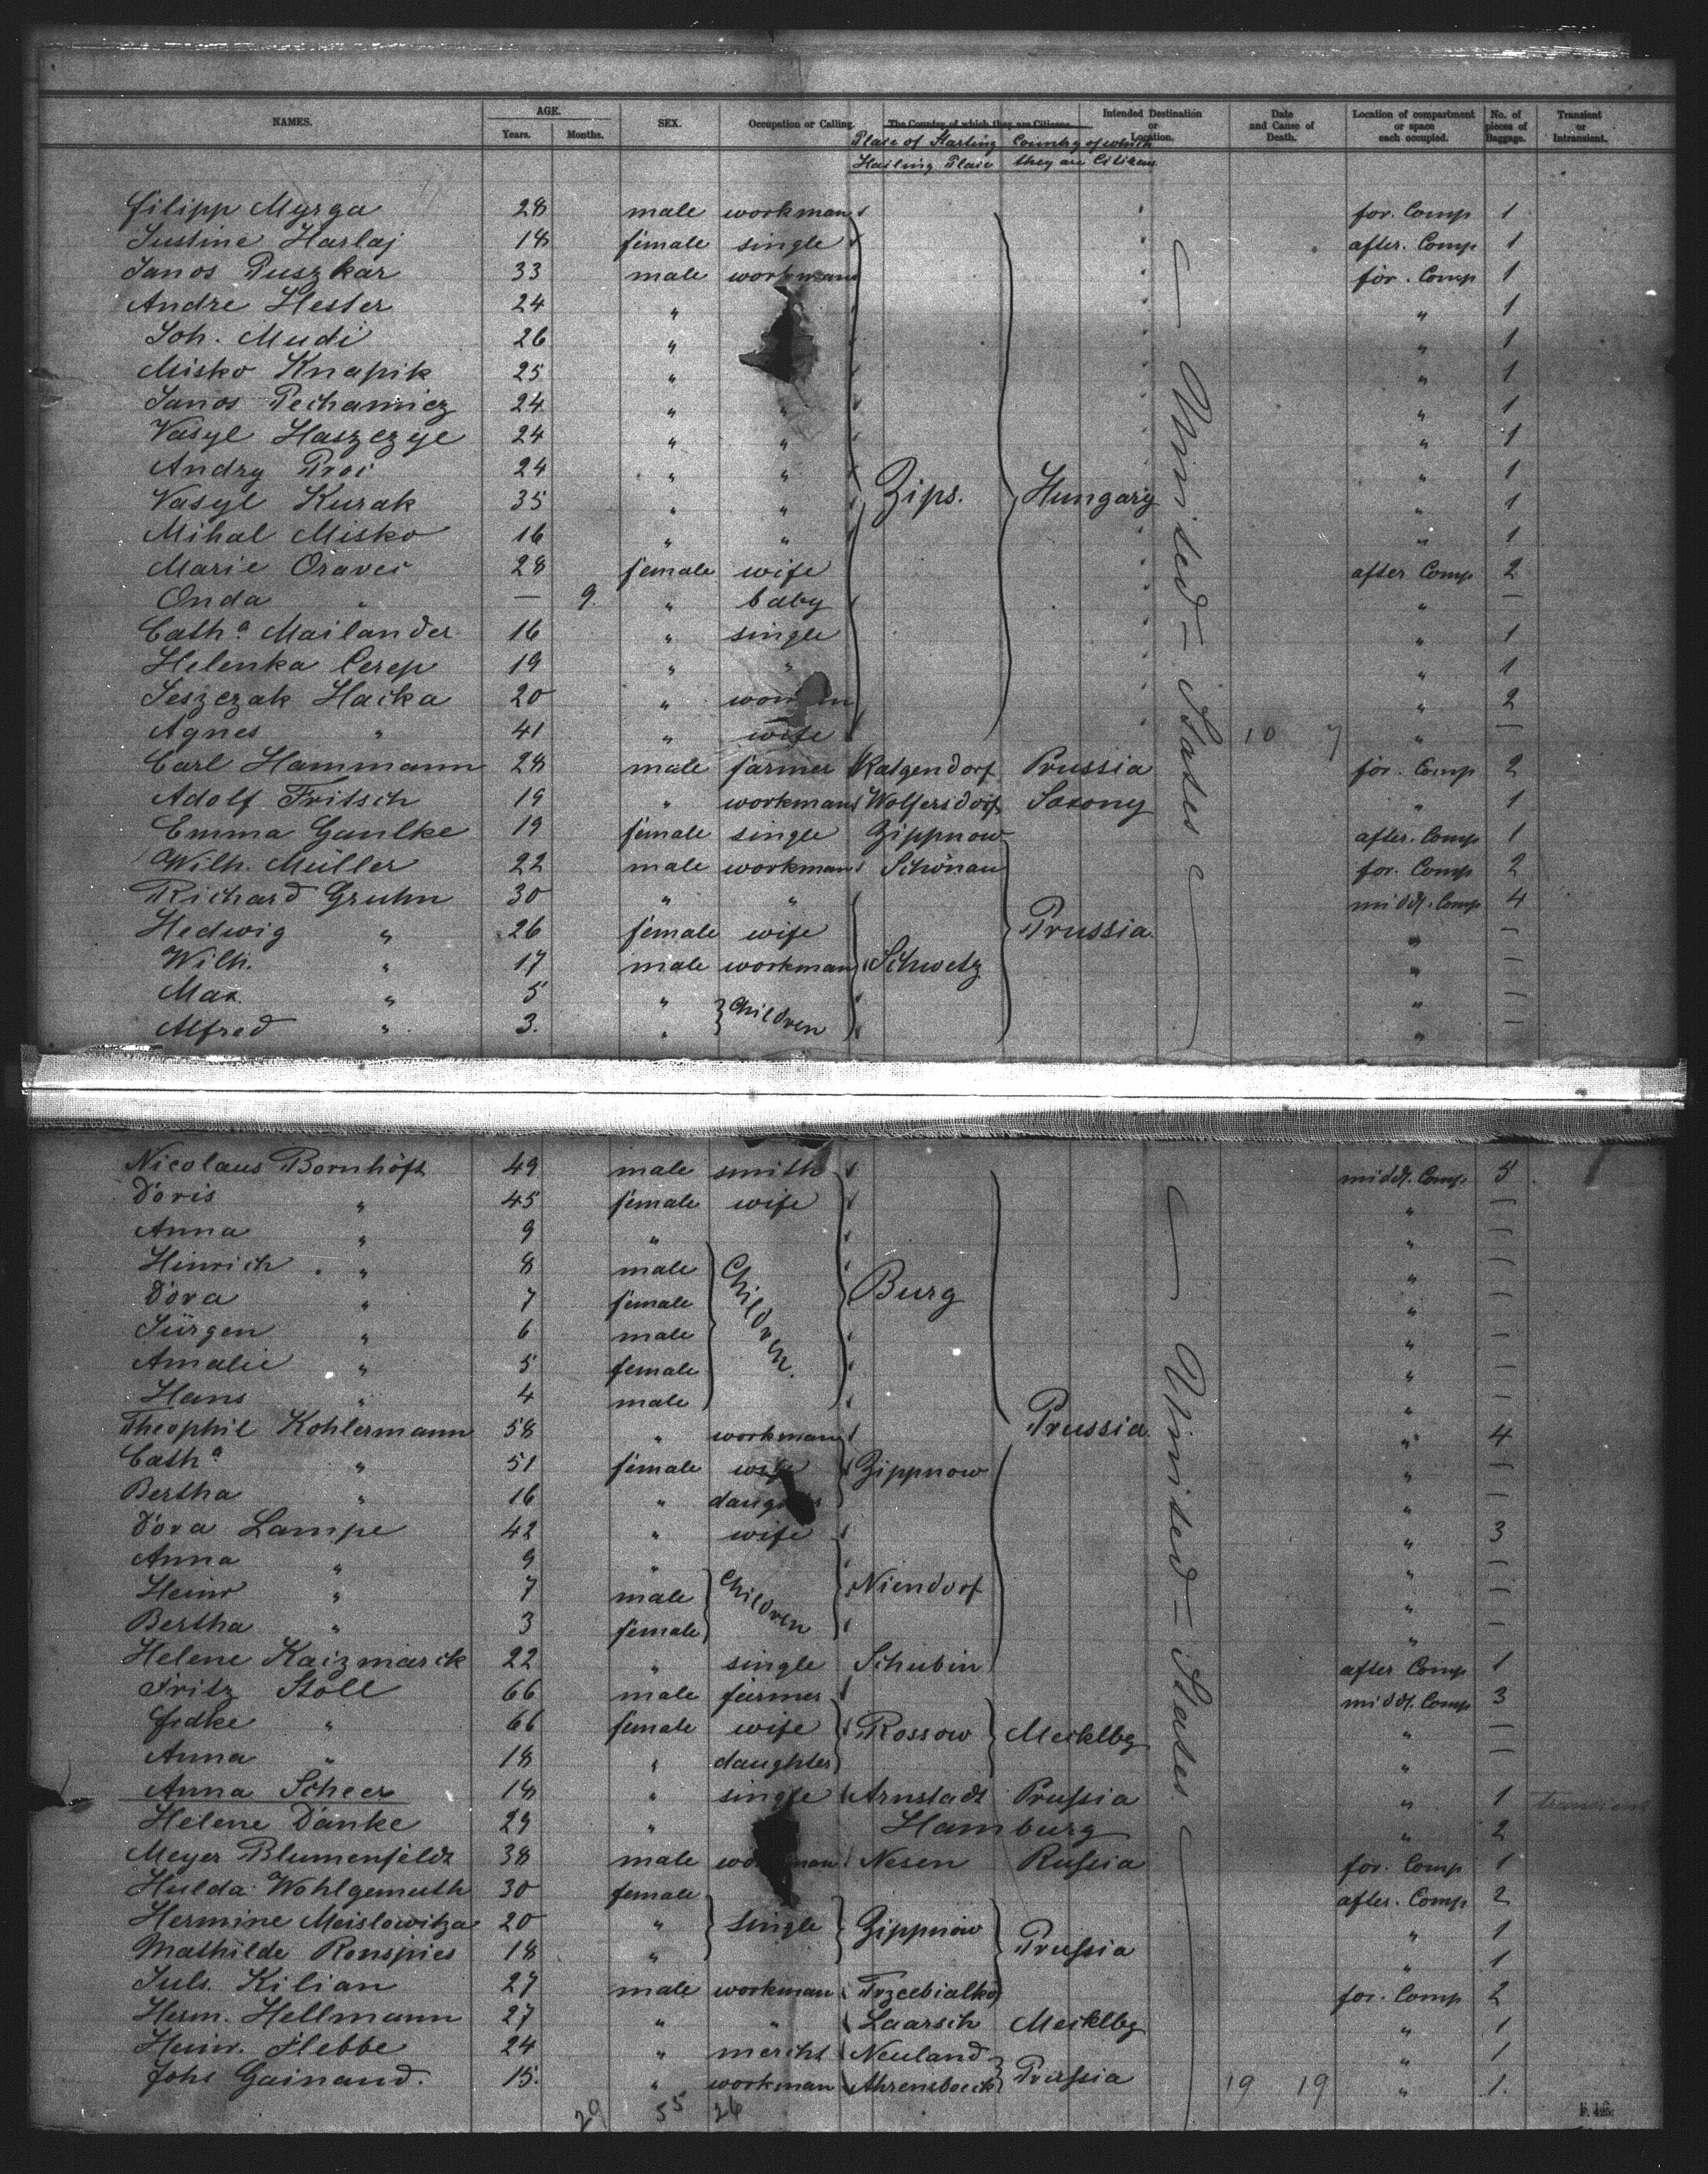 NAMES. AGE. Years. Months. SEX. Occupation or Calling. The Country of which they are Citizens. Intended Destination or Location. Date and Cause of Death. Location of compartment or space each occupied. No. of pieces of Baggage. Transient or Intransient.
Place of Starting Country of which
Hailing Place they are Citizens
Filipp Myrga 28 male workman for. Comp 1
Justine Harlaj 18 female single after. Comp 1
Janos Puszkar 33 male workman for. Comp 1
Andre Hester 24 " " 1
Joh. Mudi 26 " " 1
Misko Knapik 25 " " 1
Janos Pechamicz 24 " " " 1
Vasyl Haszczye 24 " " " 1
Andry Proi 24 " " " 1
Vasyl Kurak 35 " " Zips. Hungary " 1
Mihal Misko 16 " " " 1
Marie Oravei 28 female wife after Comp 2
Onda " — 9. " baby " —
Cath.a Mailander 16 " single " 1
Helenka Cerep 19 " " " 1
Jeszczak Hacka 20 " woman " 2
Agnes " 41 " wife 10 7 " —
Carl Hammann 28 male farmer Katgendorf Prussia for. Comp 2
Adolf Fritsch 19 " workman Wolfersdorf Saxony " 1
Emma Gaulke 19 female single Zippnow after. Comp 1
Wilh. Müller 22 male workman Schönau for. Comp 2
Richard Gruhn 30 " " middl. Comp 4
Hedwig " 26 female wife Prussia. " —
Wilh. " 17 male workman Schwetz " —
Max " 5 " Children " —
Alfred " 3. " " —
United-States
Nicolaus Bornhöft 49 male smith middl. Comp 5
Doris " 45 female wife " —
Anna " 9 " " —
Hinrich " 8 male Children Burg " —
Dora " 7 female " —
Jürgen " 6 male " —
Amalie " 5 female " —
Hans " 4 male " —
Theophil Kohlermann 58 " workman Prussia " 4
Cath.a " 51 female wife Zippnow " —
Bertha " 16 " daughter " —
Dora Lampe 42 " wife " 3
Anna " 9 " " —
Heinr " 7 male Children Niendorf " —
Bertha " 3 female " —
Helene Kaizmarck 22 " single Schubin after Comp 1
Fritz Stoll 66 male farmer middl. Comp 3
Fidke " 66 female wife Rossow Mecklbg " —
Anna " 18 " daughter "
Anna Scheer 18 " single Arnstadt Prussia " 1 transient
Helene Danke 29 " Hamburg " 2
Meyer Blumenfeldt 38 male workman Nesen Russia for. Comp 1
Hulda Wohlgemuth 30 female after. Comp 2
Hermine Meislowitza 20 " single Zippnow " 1
Mathilde Renspies 18 " Prussia " 1
Juls. Kilian 27 male workman Trzcebialko for. Comp 2
Herm. Hellmann 27 " " Laarsch Mecklbg " 1
Heinr. Hebbe 24 " mercht Neuland " 1
Johs Gainand. 15. " workman Ahrensboeck Prussia 19 19 " 1.
United-States
29 55 26